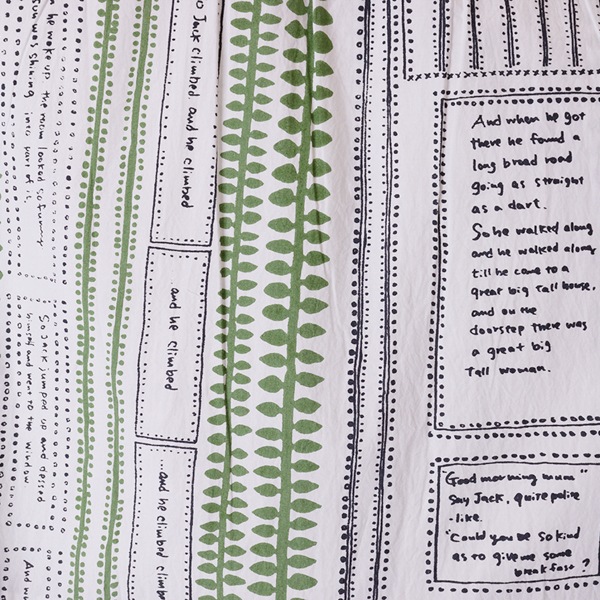 he woke up, the room looked so funny
sun was shining into part of it,
So Jack jumped up and dressed
himself and went to the window
And
o Jack climbed, and he climbed
and he climbed
and he climbed
And when he got
there he found a
long broad road
going as straight
as a dart.
So he walked along
and he walked along
till he came to a
great big Tall house,
and on the
doorstep there was
a great big
Tall woman.
Good morning mum"
Say Jack, quite polite
-like.
"Could you be so kind
as to give me some
breakfast?